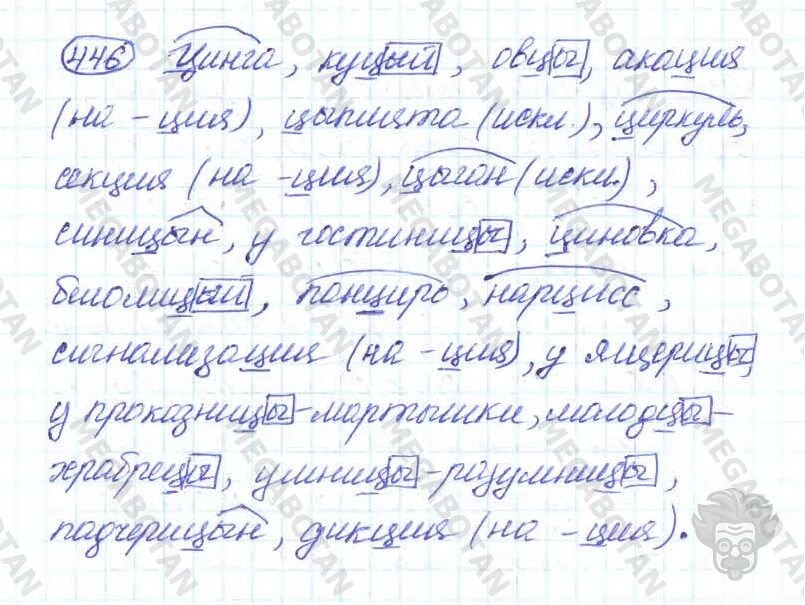 446 Цинга, куцый, овцы, акация
(на -ция), цыплята (искл.), циркуль,
секция (на -ция), цыган (искл.),
синицын, у гостиницы, циновка,
беломицый, панцирь, нарцисс,
сигнализация (на -ция), у ящерицы,
у проказницы-мартышки, молодцы-
храбрецы, умницы-разумницы,
падчерицын, дикция (на -ция).
MEGABOTAN